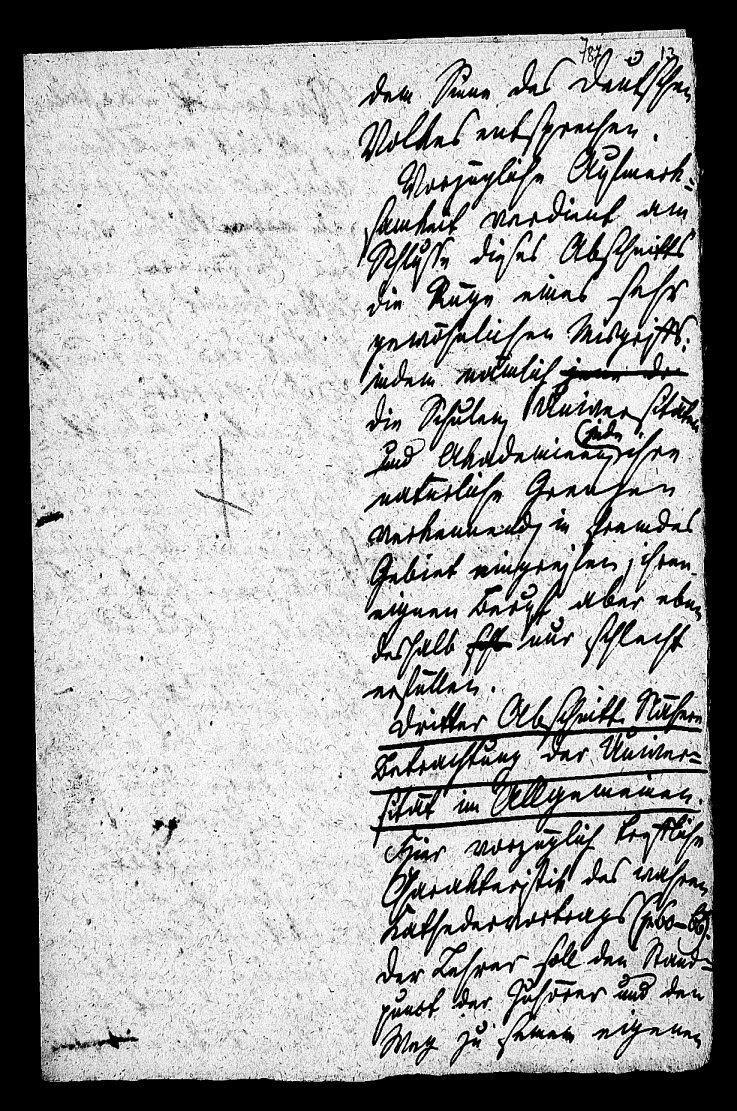 787 13
dem Sinne des deutschen
Volkes entsprechen.
Vorzügliche Aufmerk=
samkeit verdient am
Schlusse dieses Abschnitts
die Rüge eines sehr
gewöhnlichen Misgriffs:
indem nämlich jene de
die Schulen, Universitäten
und Akademieen, jede ihre
natürliche Grenzen
verkennend, in fremdes
Gebiet eingreifen, ihren
eignen Beruf aber eben
deshalb nur schlecht
erfüllen.
Dritter Abschnitt. Nähere
Betrachtung der Univer=
sität im Allgemeinen.
Hier vorzüglich treffliche
Charakteristik des wahren
Kathedervortrags
der Lehrer soll den Stand=
punct der Zuhörer und den
Weg zu seinem eigenen